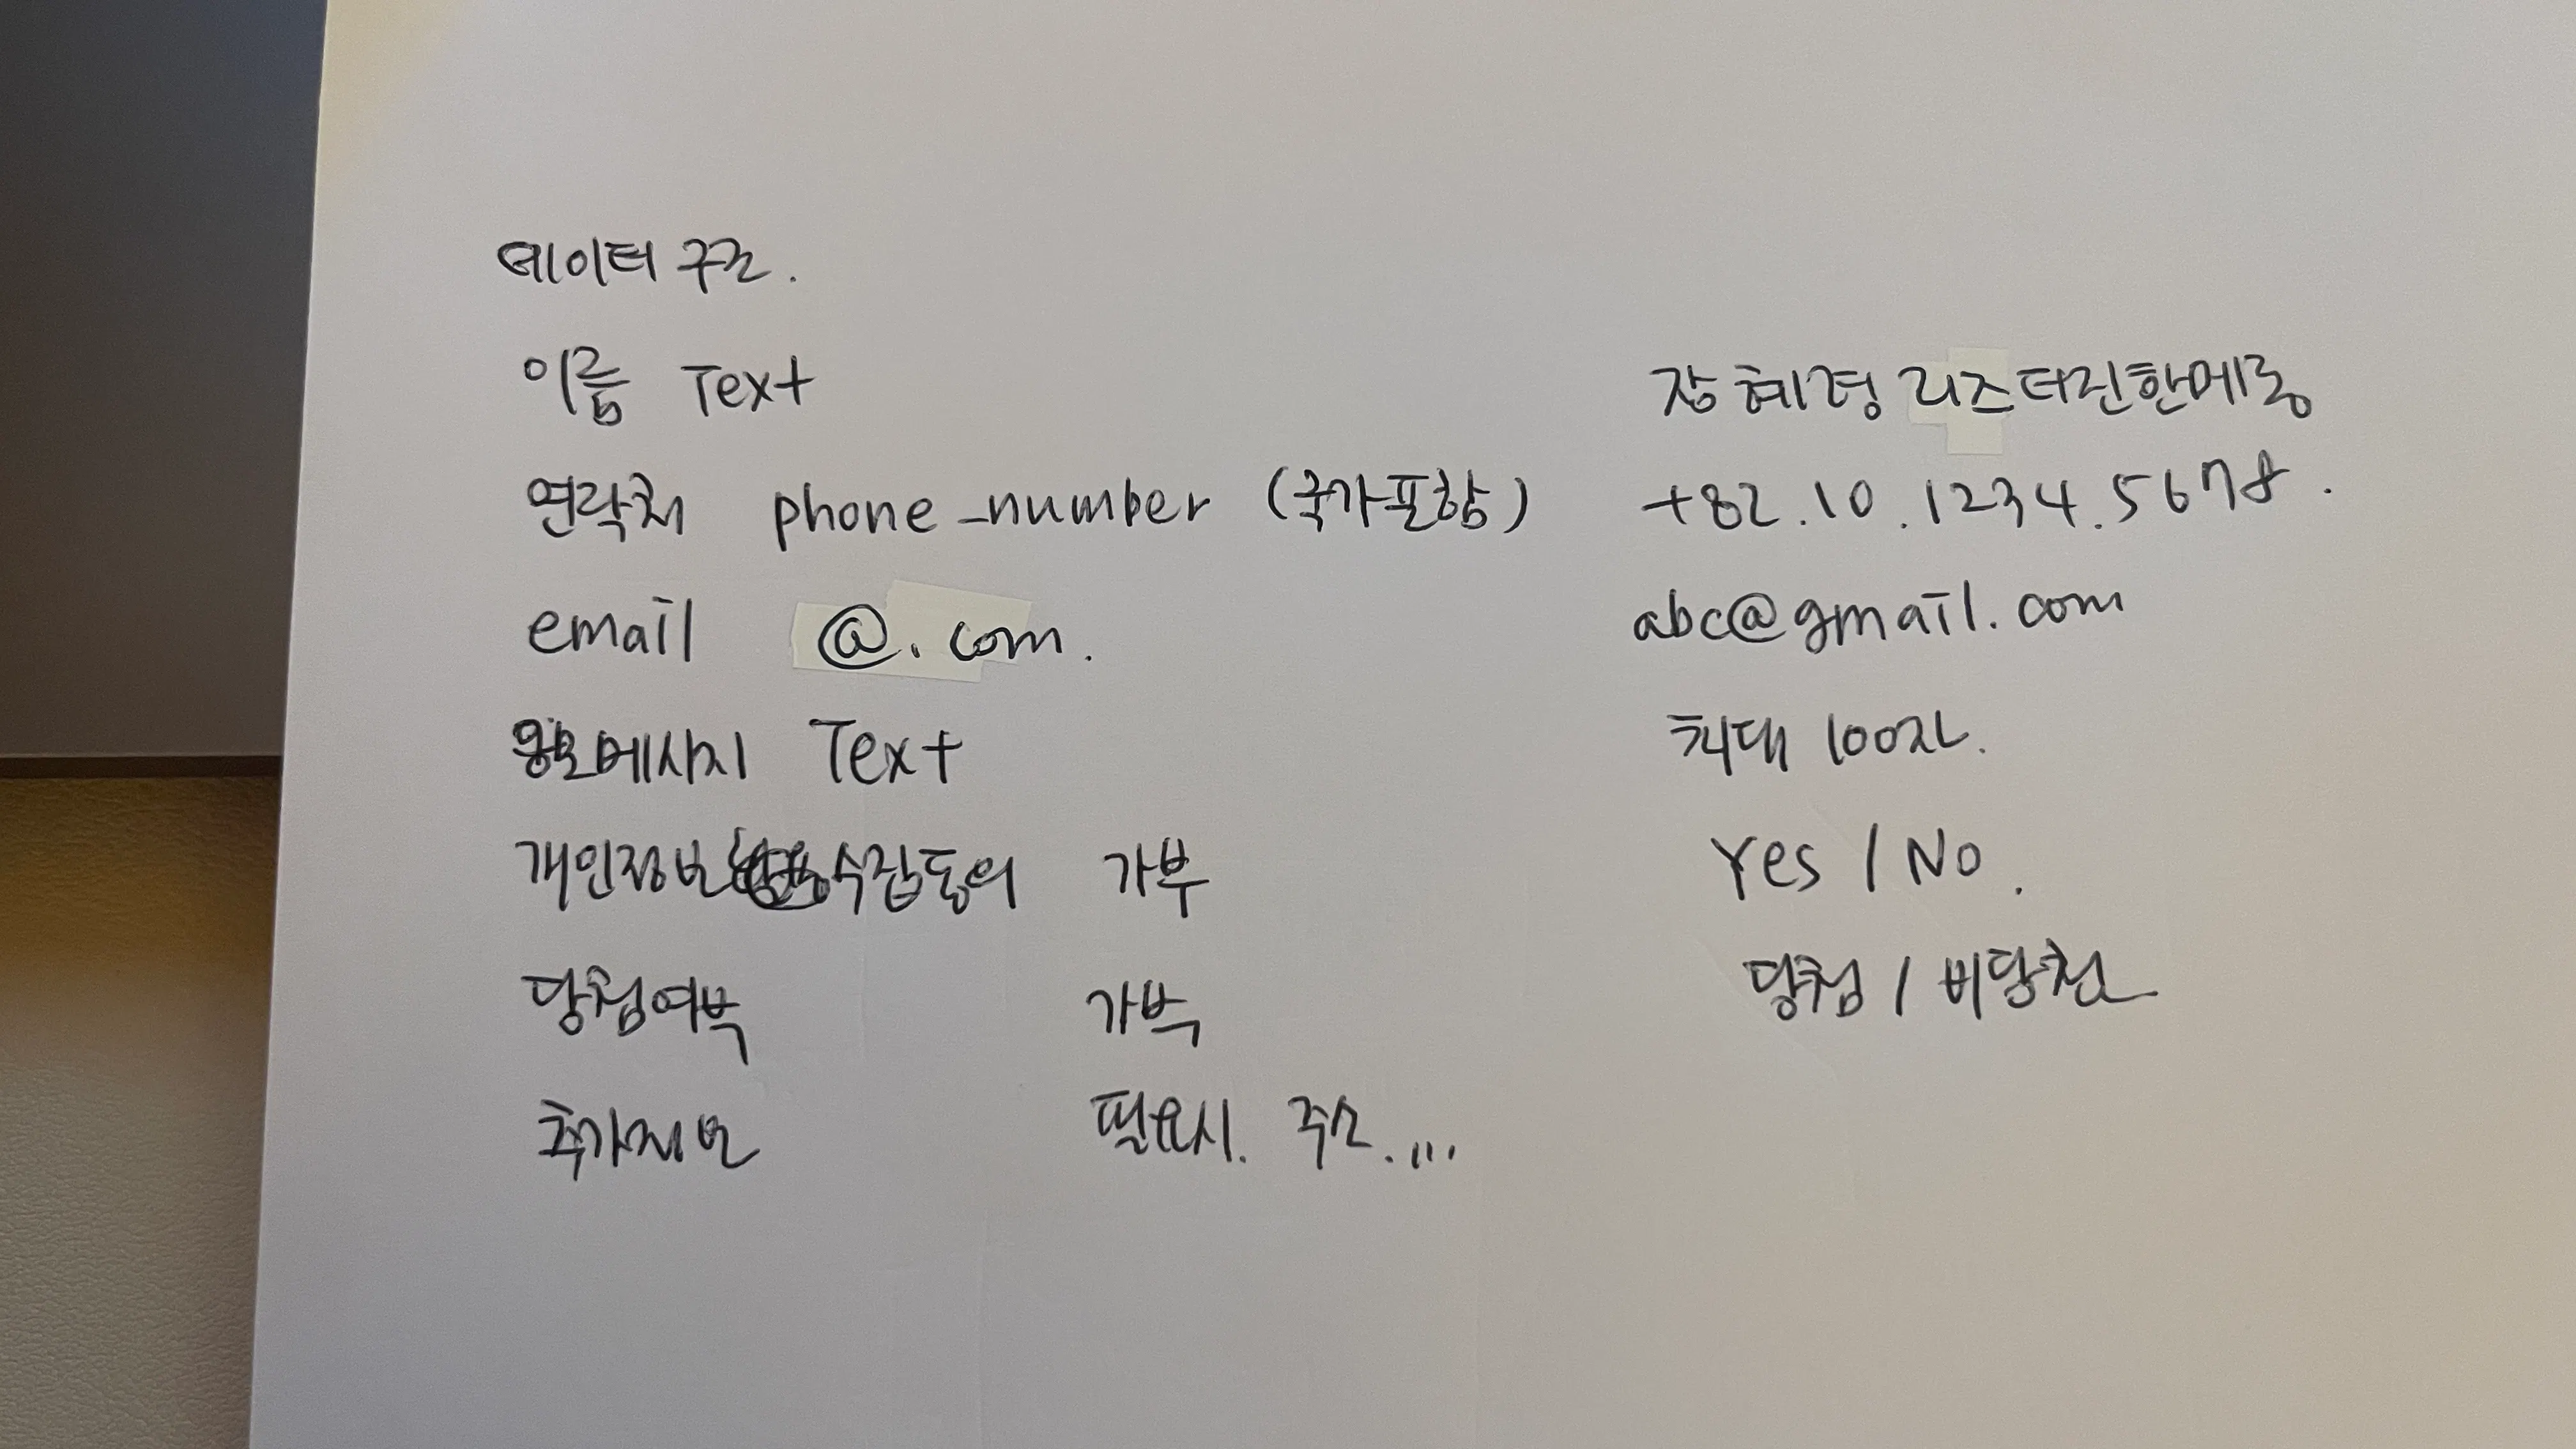 데이터 구조.
이름 Text 장혜경 리즈터진한메롱
연락처 phone_number (국가포함) +82.10.1234.5678.
email @.com. abc@gmail.com
메시지 Text 최대 100자.
개인정보 수집동의 가부 Yes / No.
당첨여부 가부 당첨 / 비당첨
추가정보 필요시. 주소. ...